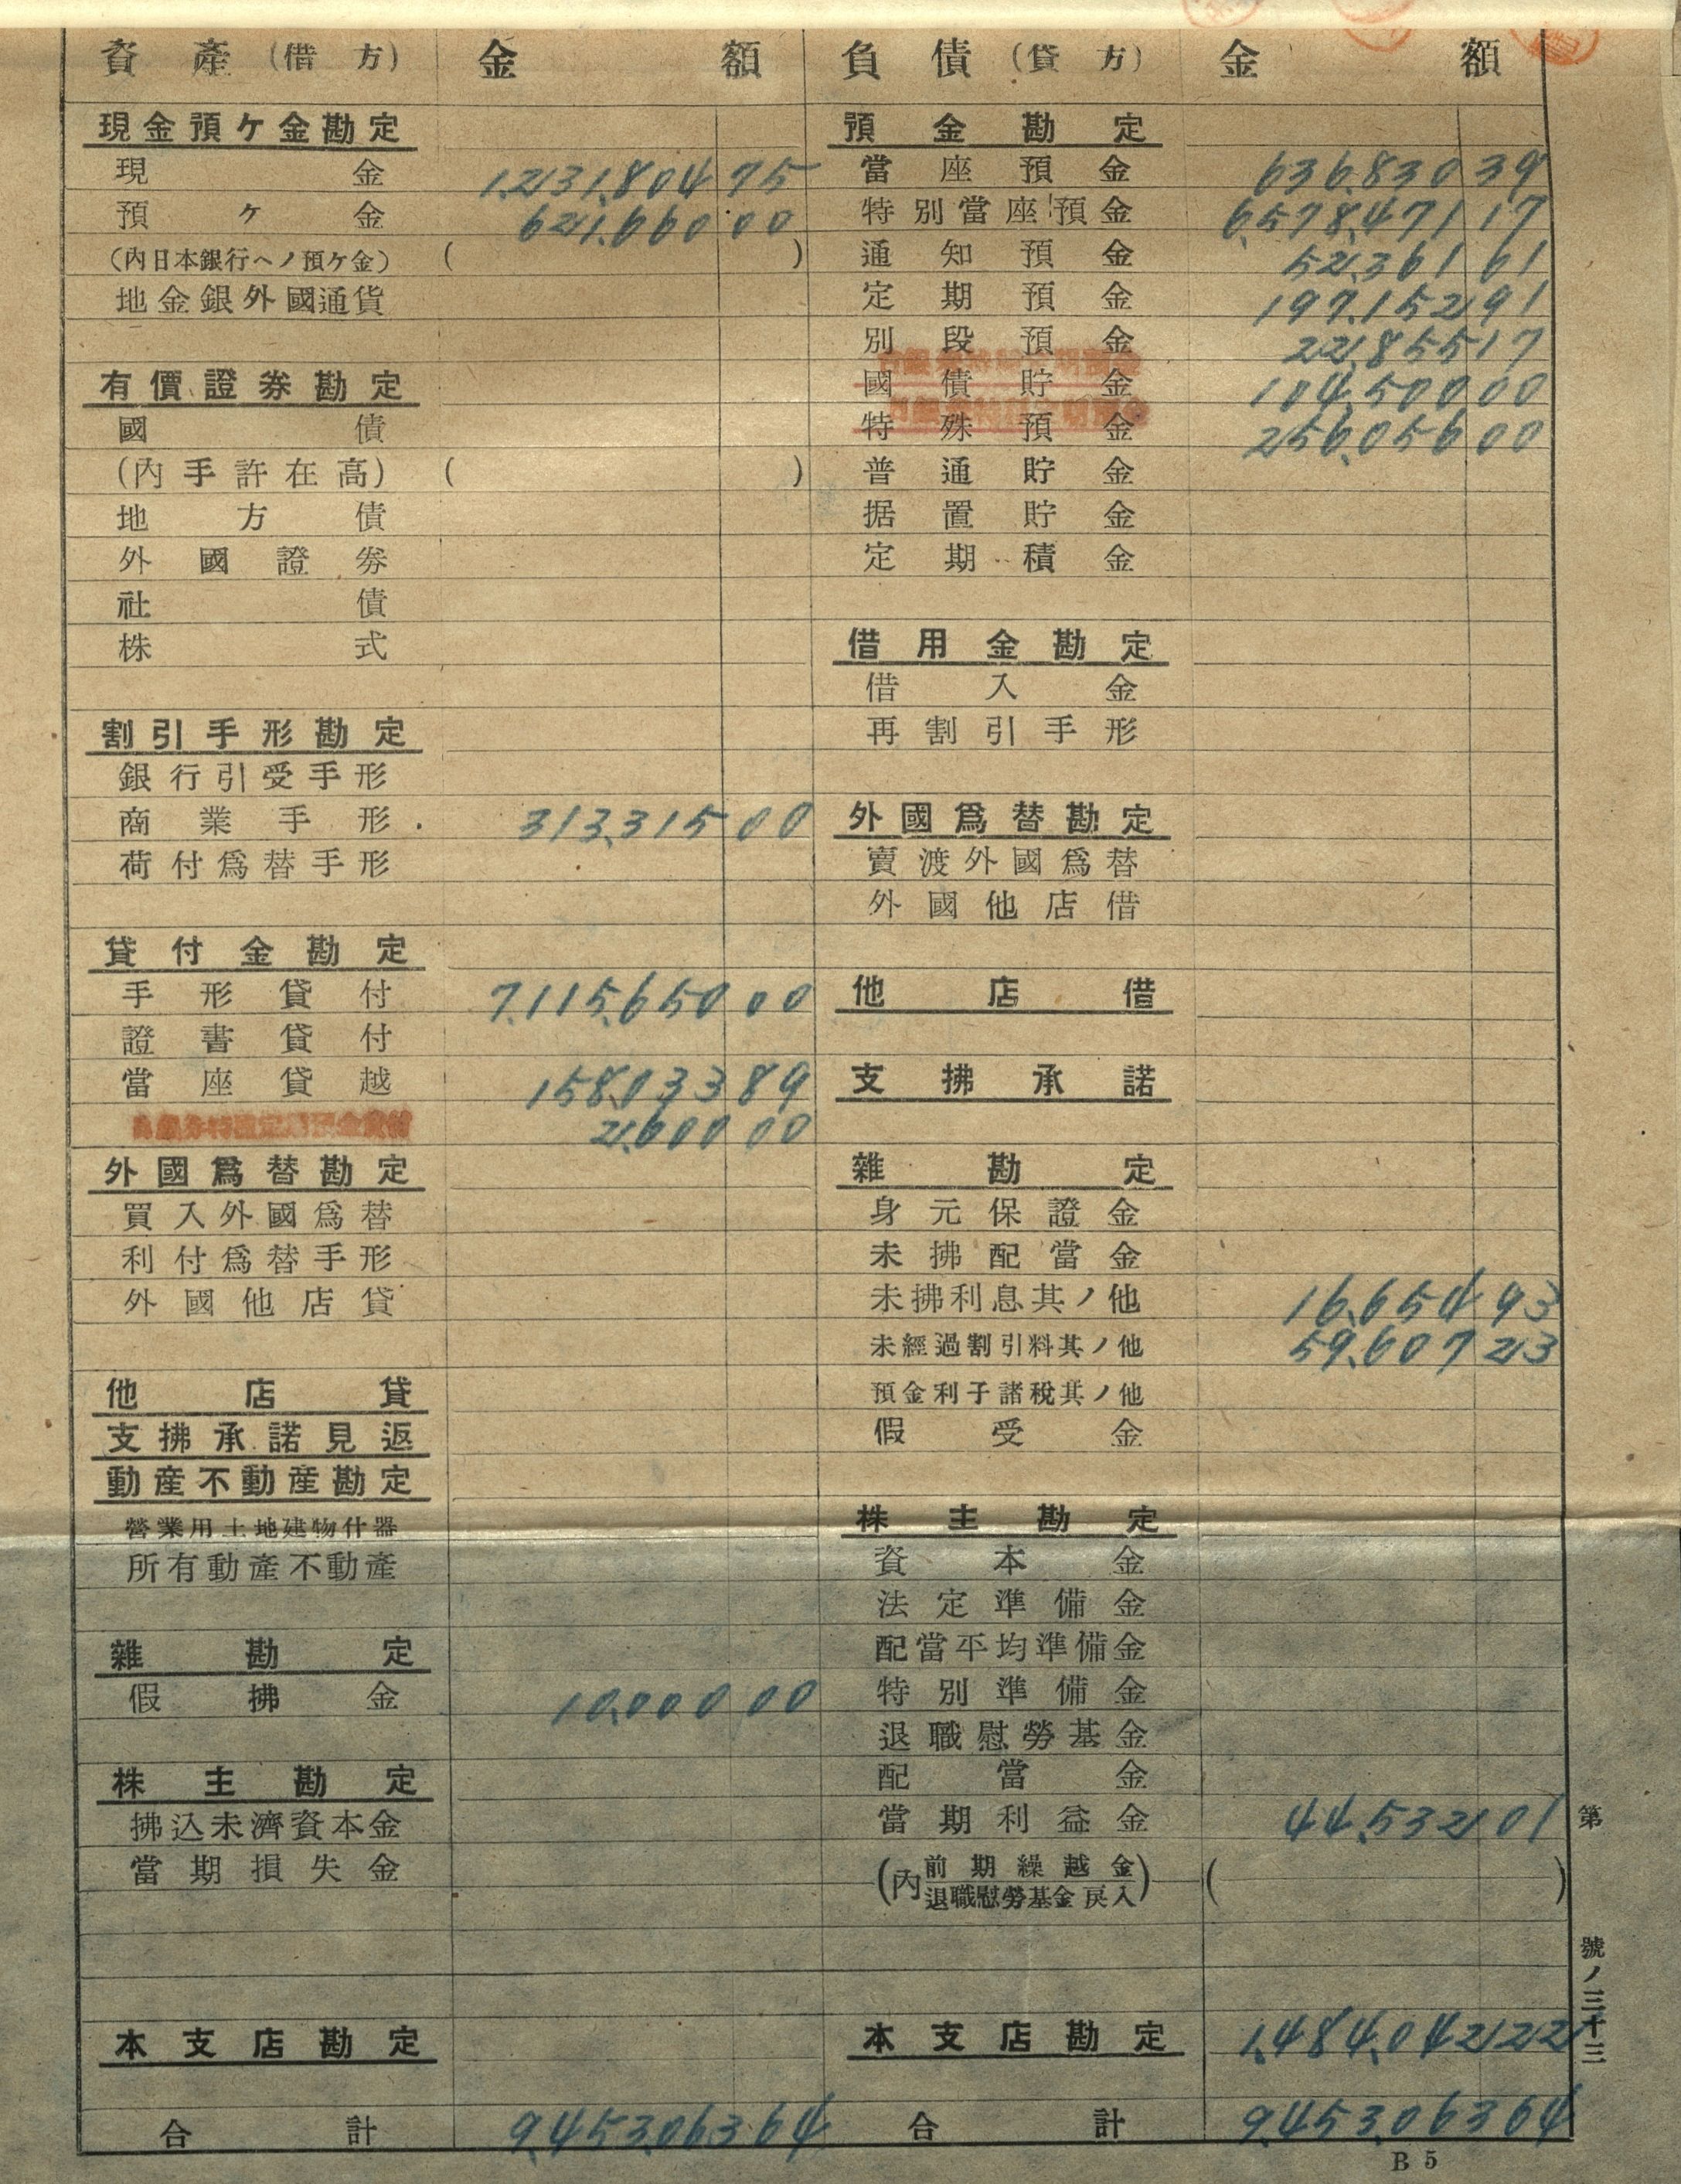 資產(借方) 金額
現金預ケ金勘定
現金 1,231,804 75
預ケ金 621,660 00
(內日本銀行ヘノ預ケ金) ( )
地金銀外國通貨
有價證券勘定
國債
(內手許在高) ( )
地方債
外國證券
社債
株式
割引手形勘定
銀行引受手形
商業手形 313,315 00
荷付爲替手形
貸付金勘定
手形貸付 7,115,650 00
證書貸付
當座貸越 158,033 89
2,600 00
外國爲替勘定
買入外國爲替
利付爲替手形
外國他店貸
他店貸
支拂承諾見返
動産不動産勘定
營業用土地建物什器
所有動産不動産
雜勘定
假拂金 10,000 00
株主勘定
拂込未濟資本金
當期損失金
本支店勘定
合計 9,453,063 64
負債(貸方) 金額
預金勘定
當座預金 636,830 39
特別當座預金 6,578,471 17
通知預金 52,361 61
定期預金 197,152 91
別段預金 22,855 17
國債貯金 104,500 00
特殊預金 256,056 00
普通貯金
据置貯金
定期積金
借用金勘定
借入金
再割引手形
外國爲替勘定
賣渡外國爲替
外國他店借
他店借
支拂承諾
雜勘定
身元保證金
未拂配當金
未拂利息其ノ他 16,654 93
未經過割引料其ノ他 59,607 23
預金利子諸稅其ノ他
假受金
株主勘定
資本金
法定準備金
配當平均準備金
特別準備金
退職慰勞基金
配當金
當期利益金 44,532 01
(內前期繰越金
退職慰勞基金戾入) ( )
本支店勘定 1,484,042 22
合計 9,453,063 64
第 號ノ三十三
B 5